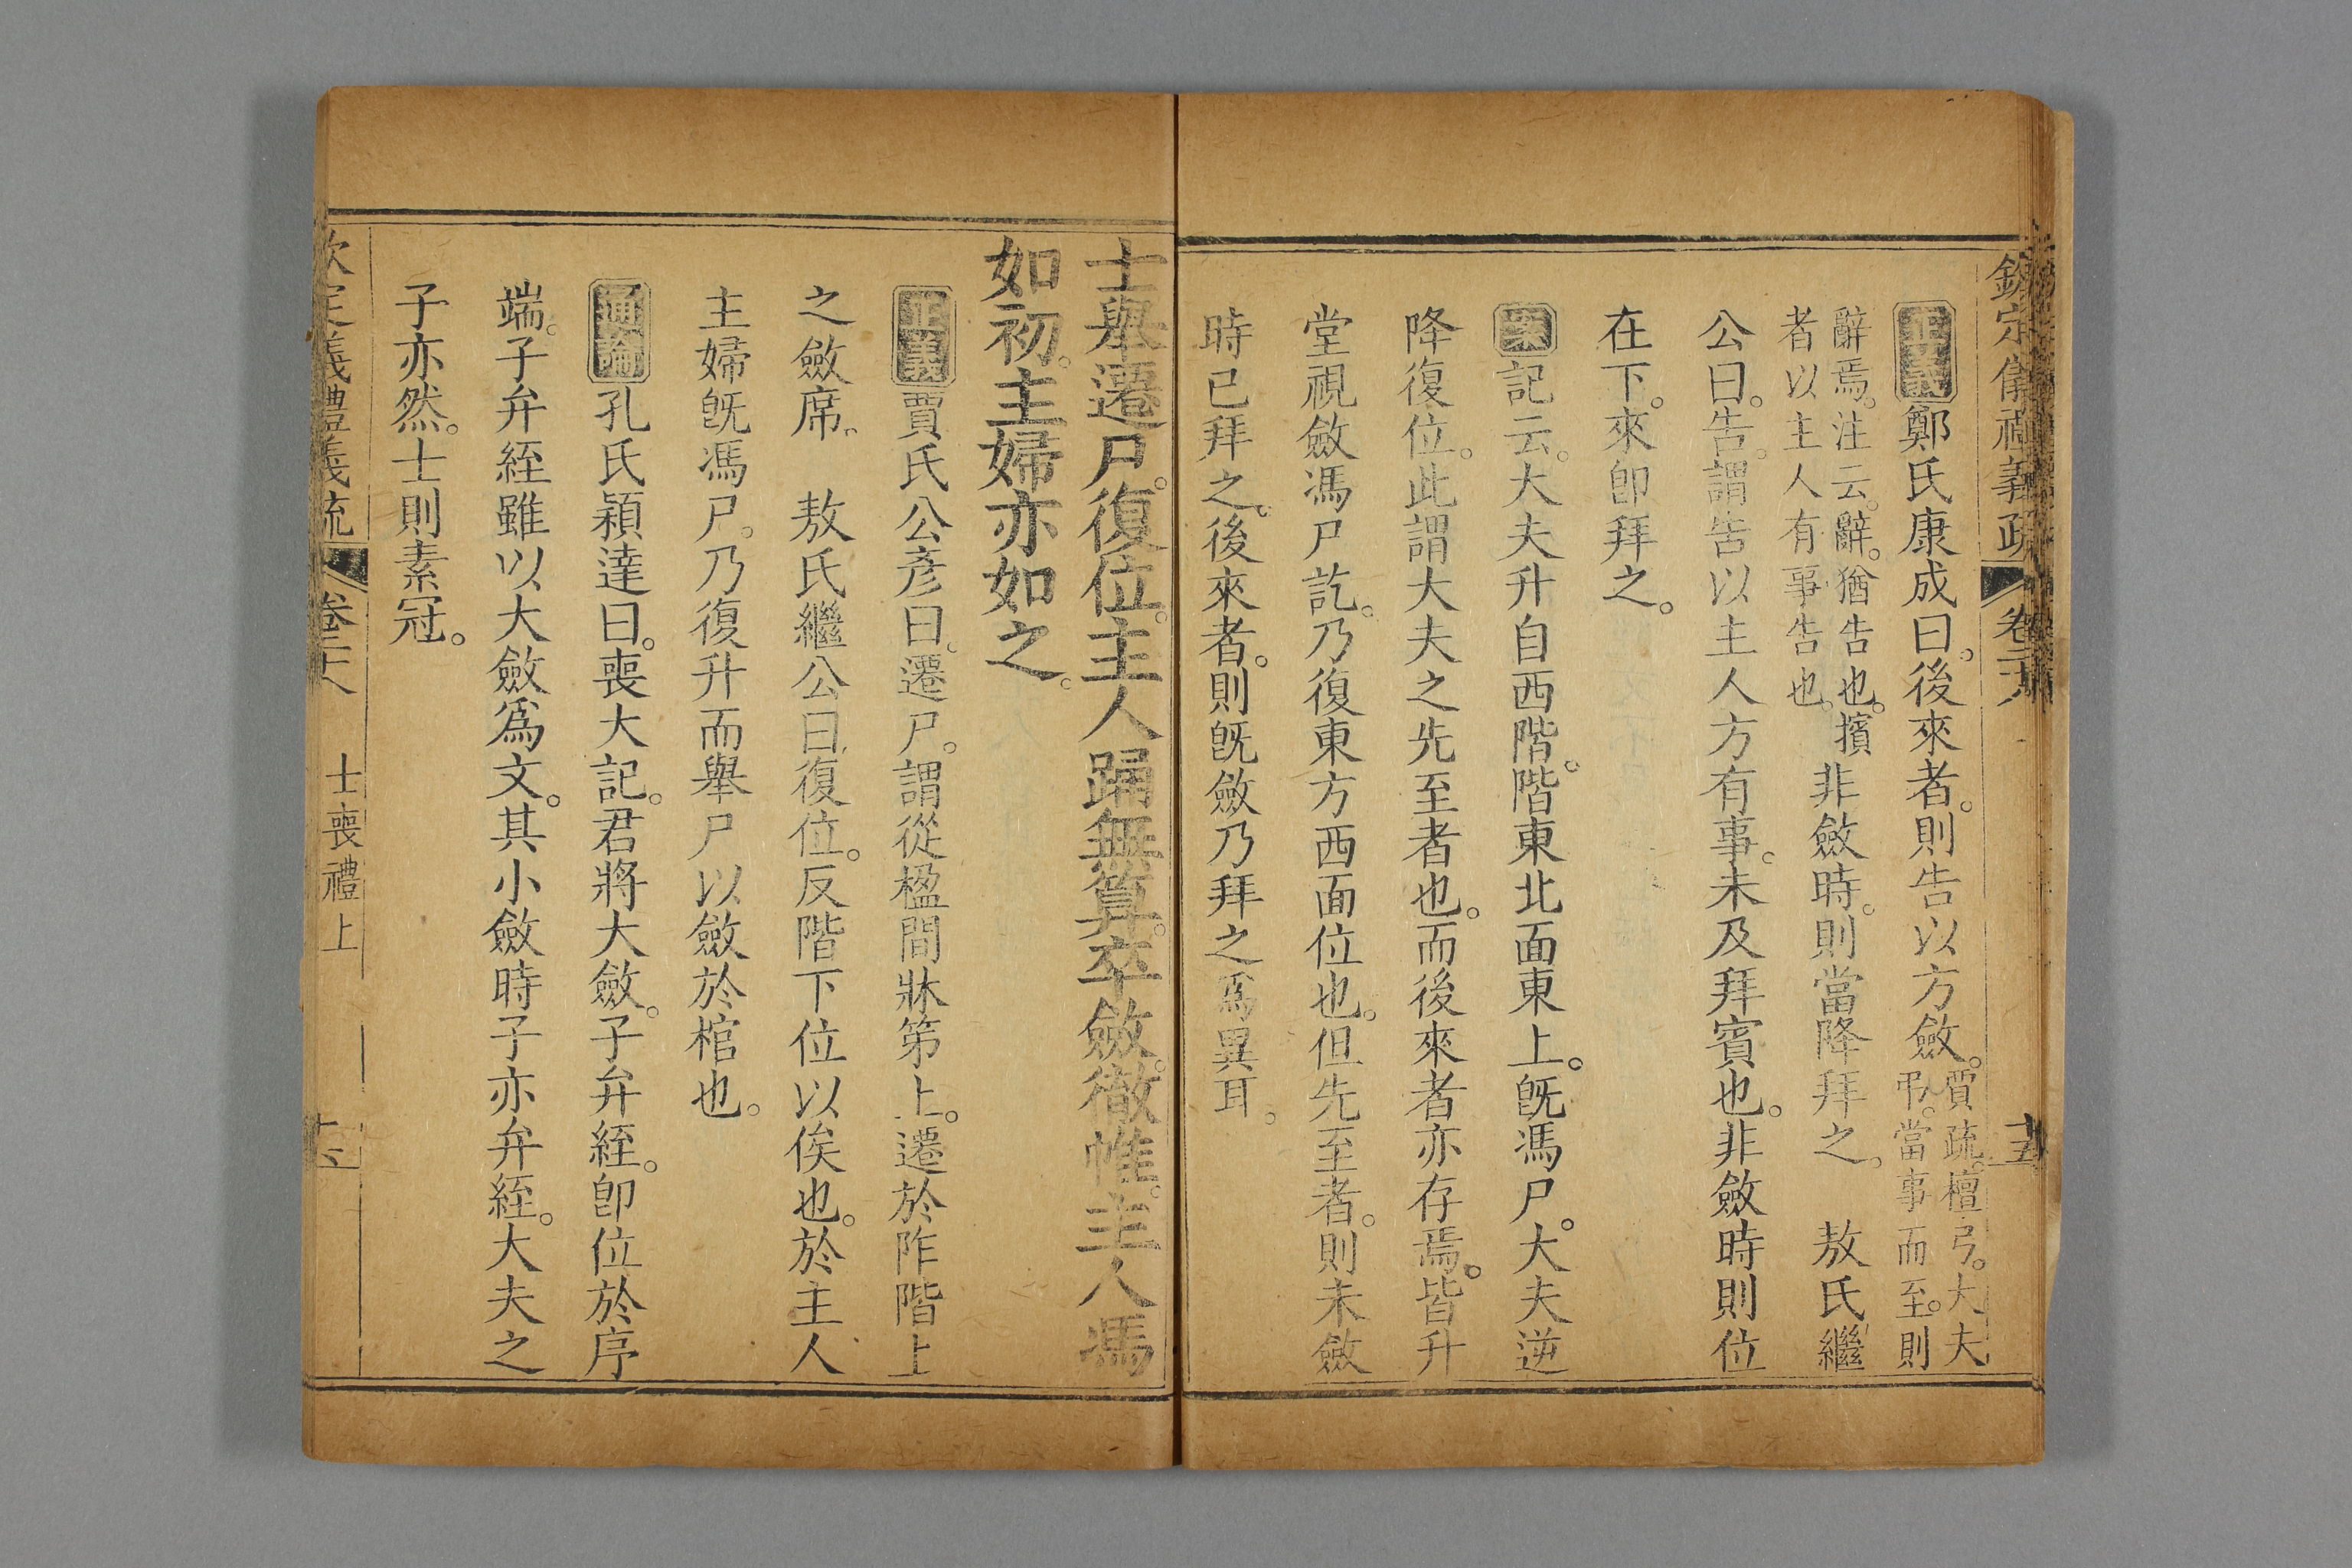 欽定儀禮義疏 卷二十八 十五
正義鄭氏康成曰。後來者。則告以方斂。賈疏。檀弓。大夫
弔。當事而至。則
辭焉。注云。辭。猶告也。擯
者以主人有事告也。
非斂時。則當降拜之。 敖氏繼
公曰。告。謂告以主人方有事。未及拜賓也。非斂時則位
在下。來卽拜之。
案記云。大夫升自西階。階東北面東上。旣馮尸。大夫逆
降復位。此謂大夫之先至者也。而後來者亦存焉。皆升
堂視斂馮尸訖。乃復東方西面位也。但先至者。則未斂
時已拜之。後來者。則旣斂乃拜之爲異耳。
士舉遷尸。復位。主人踊無算。卒斂。徹帷。主人馮
如初。主婦亦如之。
正義賈氏公彥曰。遷尸。謂從楹間牀笫上。遷於阼階上
之斂席。 敖氏繼公曰。復位。反階下位以俟也。於主人
主婦旣馮尸。乃復升而舉尸以斂於棺也。
通論孔氏穎達曰。喪大記。君將大斂。子弁絰。卽位於序
端。子弁絰雖以大斂爲文。其小斂時子亦弁絰。大夫之
子亦然。士則素冠。
欽定義禮義疏 卷二十八 士喪禮上